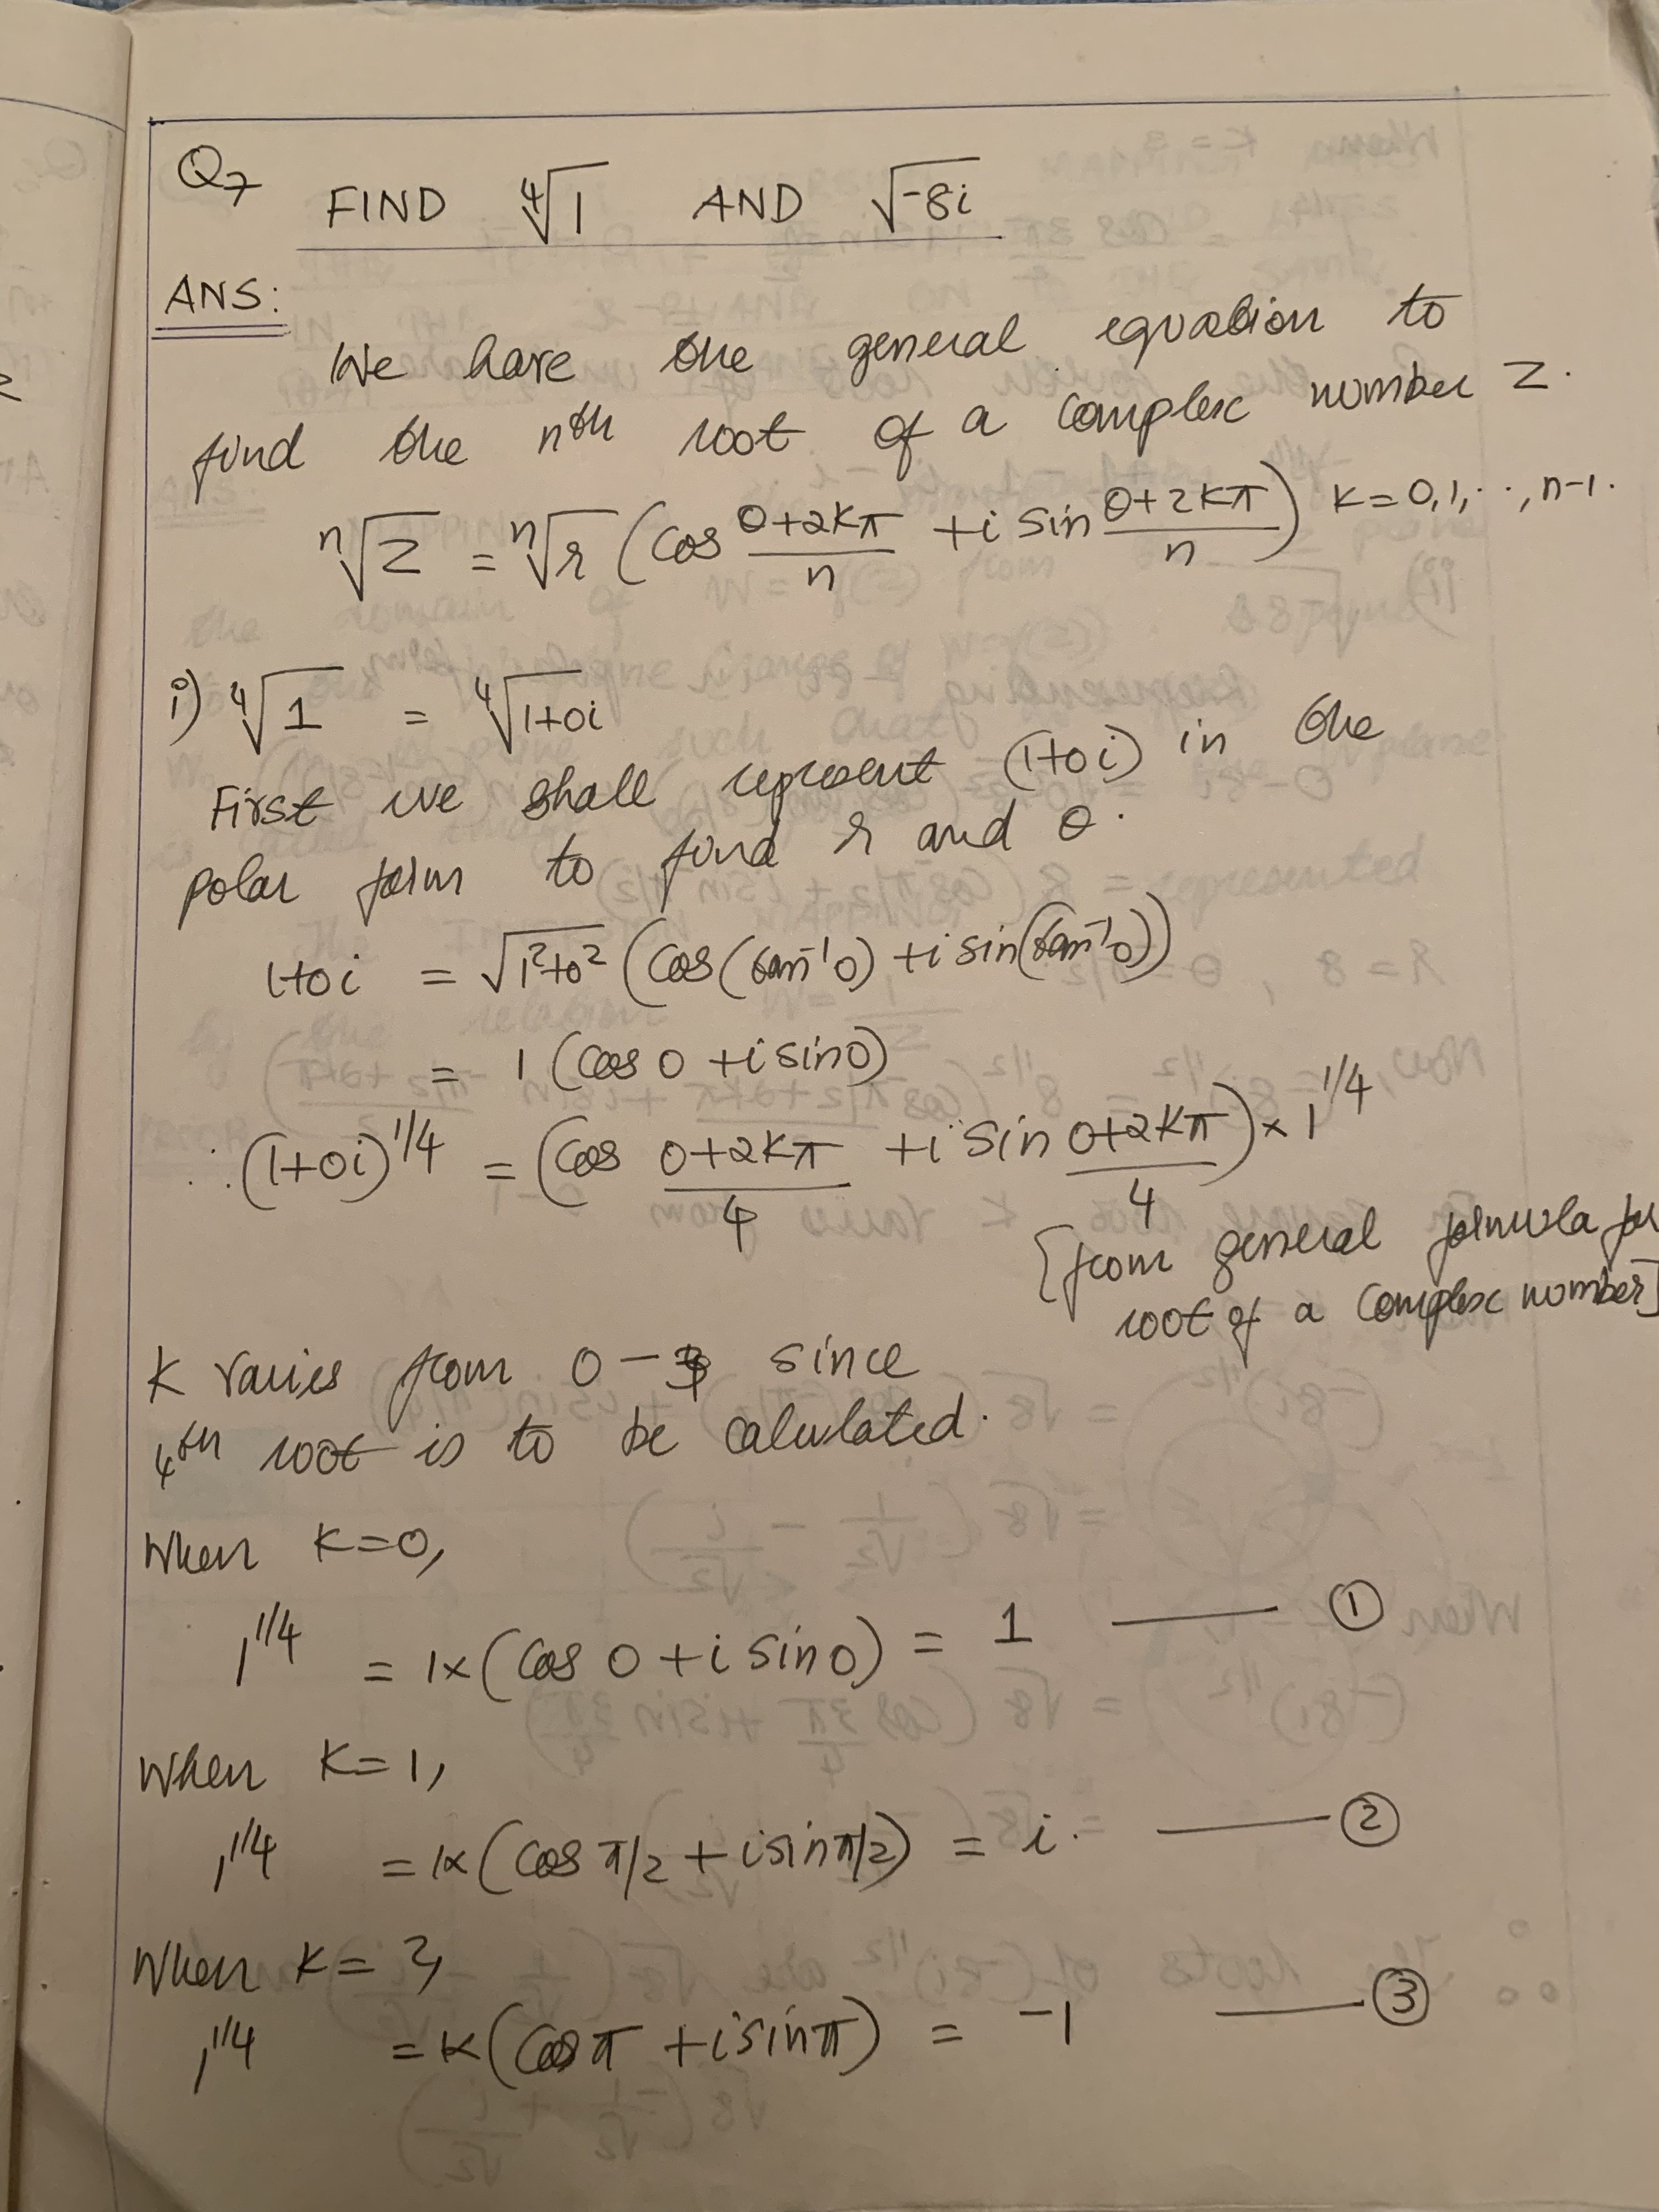 Q7 FIND ∜1 AND √-8i
ANS:
We have the general equation to
find the nth root of a complex number Z.
ⁿ√Z = ⁿ√r (cos (θ+2kπ)/n + i sin (θ+2kπ)/n) k=0,1,..,n-1.
i) ∜1 = ∜1+0i
First we shall represent (1+0i) in the
polar form to find r and θ.
1+0i = √1²+0² (cos(tan⁻¹0) + i sin(tan⁻¹0))
= 1 (cos 0 + i sin 0)
∴ (1+0i)^1/4 = (cos (0+2kπ)/4 + i sin (0+2kπ)/4) × 1^1/4
[from general formula for
root of a complex number]
K varies from 0 - 3 since
4th root is to be calculated.
When K=0,
1^1/4 = 1×(cos 0 + i sin 0) = 1 —— ①
When K=1,
1^1/4 = 1×(cos π/2 + i sin π/2) = i. —— ②
When K=2,
1^1/4 = 1×(cos π + i sin π) = -1 —— ③